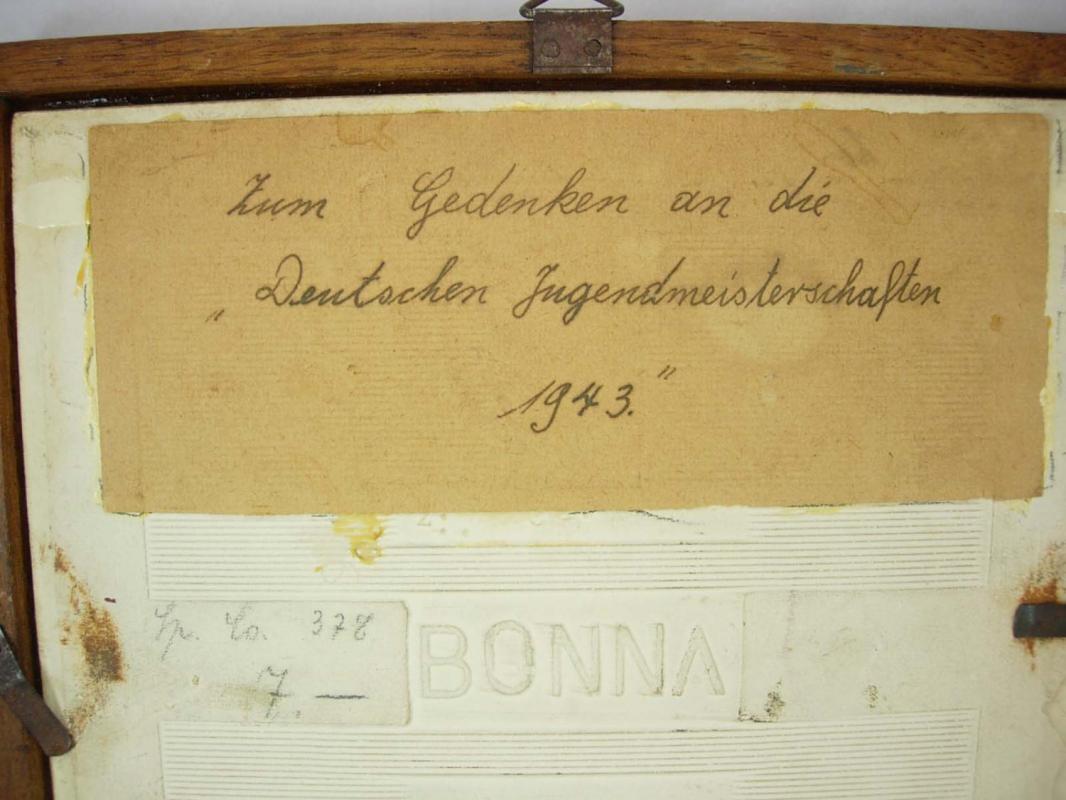 Zum Gedenken an die
„Deutschen Jugendmeisterschaften
1943."
378
BONNA
7. —